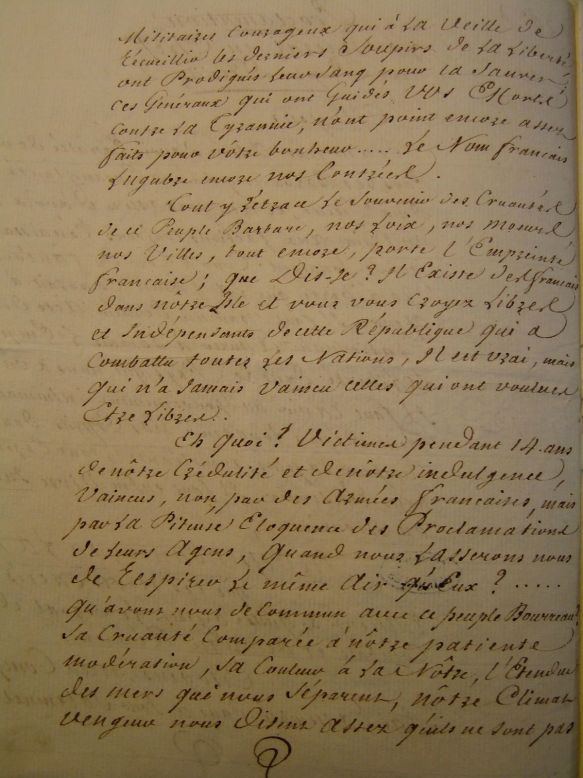 Militaires Courageux qui à La Veille de
Recueillir les derniers Soupirs de La Liberté
ont Prodigués Leur Sang pour la Sauver
ces Généraux qui ont Guidés VVs Efforts
contre La Tyrannie, n'ont point encore assez
faits pour vôtre bonheur..... Le Nom français
Lugubre encore nos Contrées.
Tout y rétrace Le Souvenir des Cruautés
de ce Peuple Barbare, nos Loix, nos Moeurs
nos Villes, tout encore, porte l'Empreinte
française; que Dis-Je? Il Existe des français
dans nôtre Isle et vous vous Croyez Libres
et Indépendants de cette République qui a
Combattu toutes Les Nations, Il est vrai, mais
qui n'a Jamais Vaincu celles qui ont voulues
Etre Libres.
Eh quoi? Victimes pendant 14 ans
de nôtre Crédulité et de nôtre indulgence,
Vaincus, non par des Armées francaises, mais
par La Piteuse Eloquence des Proclamations
de Leurs Agens, Quand nous Lasserons nous
de Respirer Le même Air qu'Eux?.....
qu'avons nous de Commun avec ce peuple Bourreau?
Sa Cruauté Comparée à nôtre patiente
modération, Sa Couleur à La Nôtre, l'Etendue
des mers qui nous Séparent, nôtre Climat
vengeur nous Disent Assez qu'ils ne sont pas